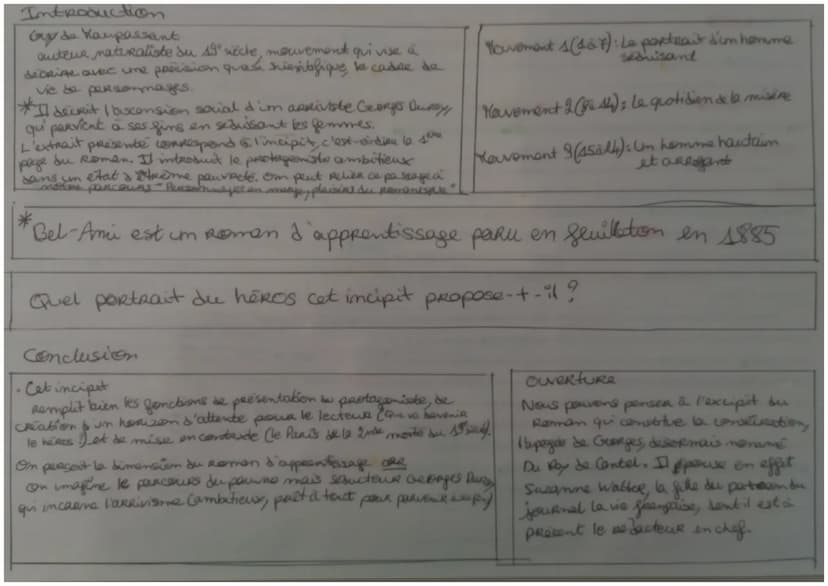 Introduction
Guy de Maupassant
auteur naturaliste du 19e siècle, mouvement qui vise à
décrire avec une précision quasi scientifique, le cadre de
vie de personnages.
*Il décrit l'ascension social d'un arriviste Georges Duroy,
qui parvient à ses fins en séduisant les femmes.
L'extrait présenté correspond à l'incipit, c'est-à-dire la 1ère
page du Roman. Il introduit le protagoniste ambitieux
dans un état d'extrême pauvreté. On peut relier ce passage à
notre parcours "Personnages en marge, plaisirs du romanesque"
Mouvement 1 (1 à 7) : Le portrait d'un homme
séduisant
Mouvement 2 : Le quotidien de la misère
Mouvement : Un homme hautain
et arrogant
*Bel-Ami est un roman d'apprentissage paru en feuilleton en 1885
Quel portrait du héros cet incipit propose-t-il ?
Conclusion
. Cet incipit
remplit bien les fonctions de présentation du protagoniste, de
création d'un horizon d'attente pour le lecteur (que va devenir
le héros) et de mise en contexte (le Paris de la 2nde moitié du 19e siècle).
On perçoit la dimension du roman d'apprentissage
on imagine le parcours du pauvre mais séducteur Georges Duroy
qui incarne l'arrivisme (ambitieux, prêt à tout pour parvenir
OUVERTURE
Nous pouvons penser à l'excipit du
Roman qui constitue la consécration,
l'apogée de Georges, désormais nommé
Du Roy de Cantel. Il épouse en effet
Suzanne Walter, la fille du patron du
journal La vie française, dont il est à
présent le rédacteur en chef.